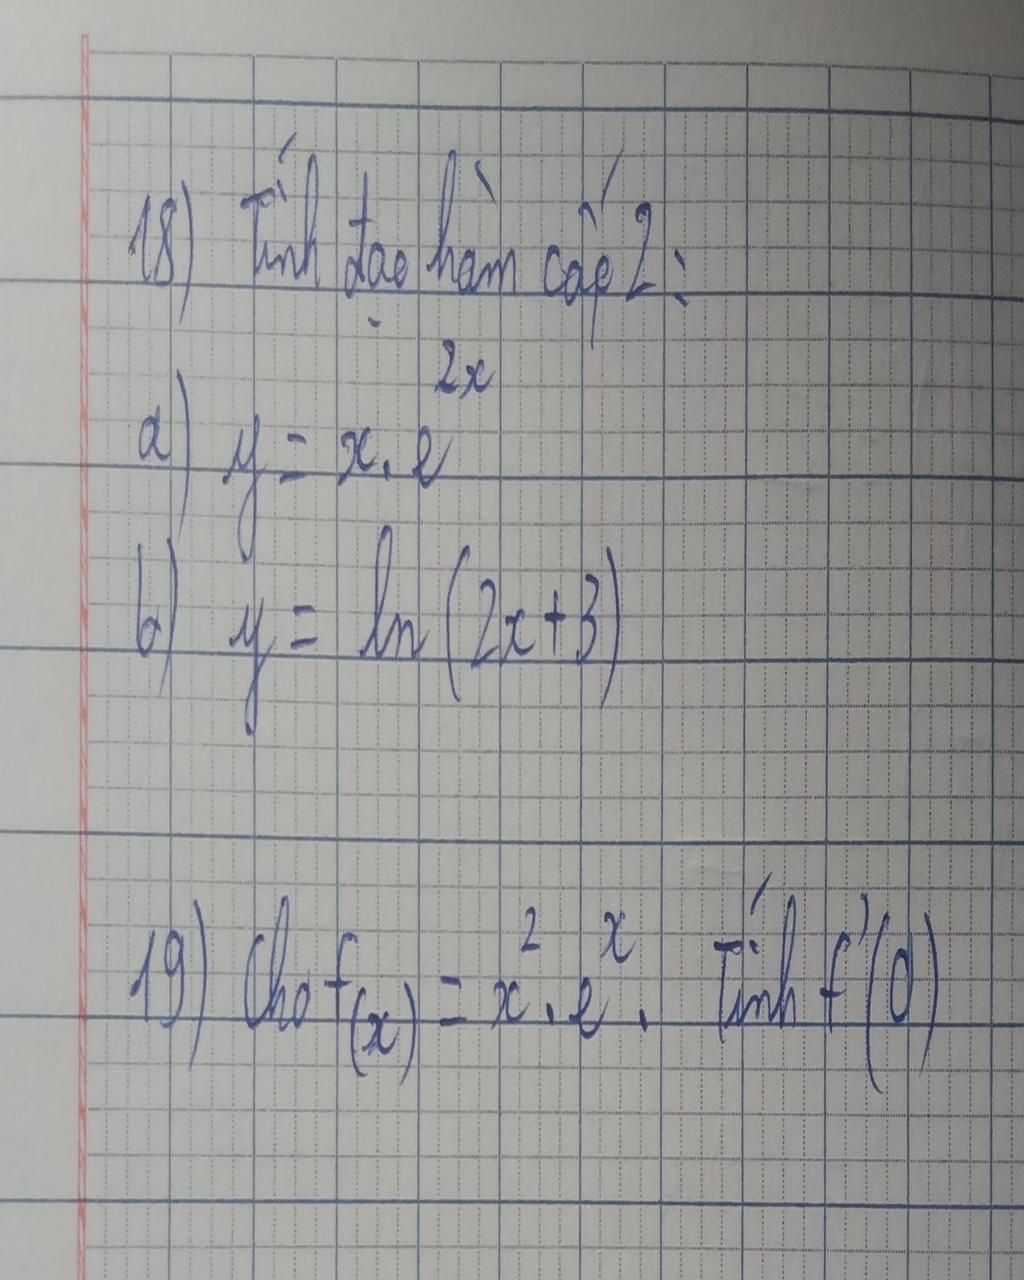 18) Tính đạo hàm cấp 2:
a) y = x. e^{2x}
b) y = ln (2x+3)
19) Cho f(x) = x^2 . e^x . Tính f'(0)